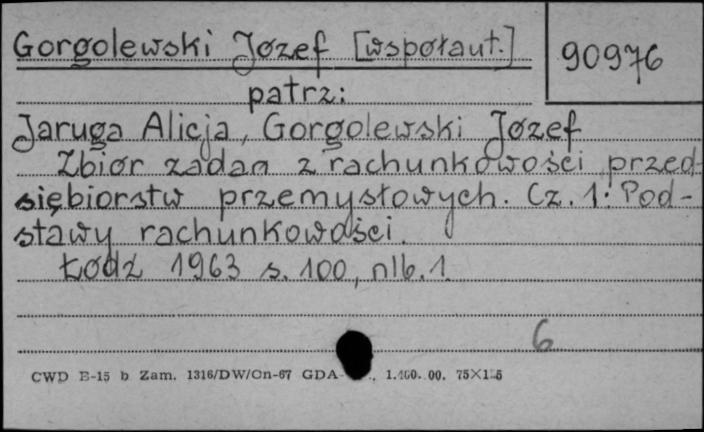 Gorgolewski Józef [współaut.]
90976
patrz:
Jaruga Alicja, Gorgolewski Józef
Zbiór zadań z rachunkowości przed-
siębiorstw przemysłowych. Cz. 1: Pod-
stawy rachunkowości.
Łódź 1963 s. 100, nlb. 1.
6
CWD E-15 b Zam. 1316/DW/On-67 GDA-